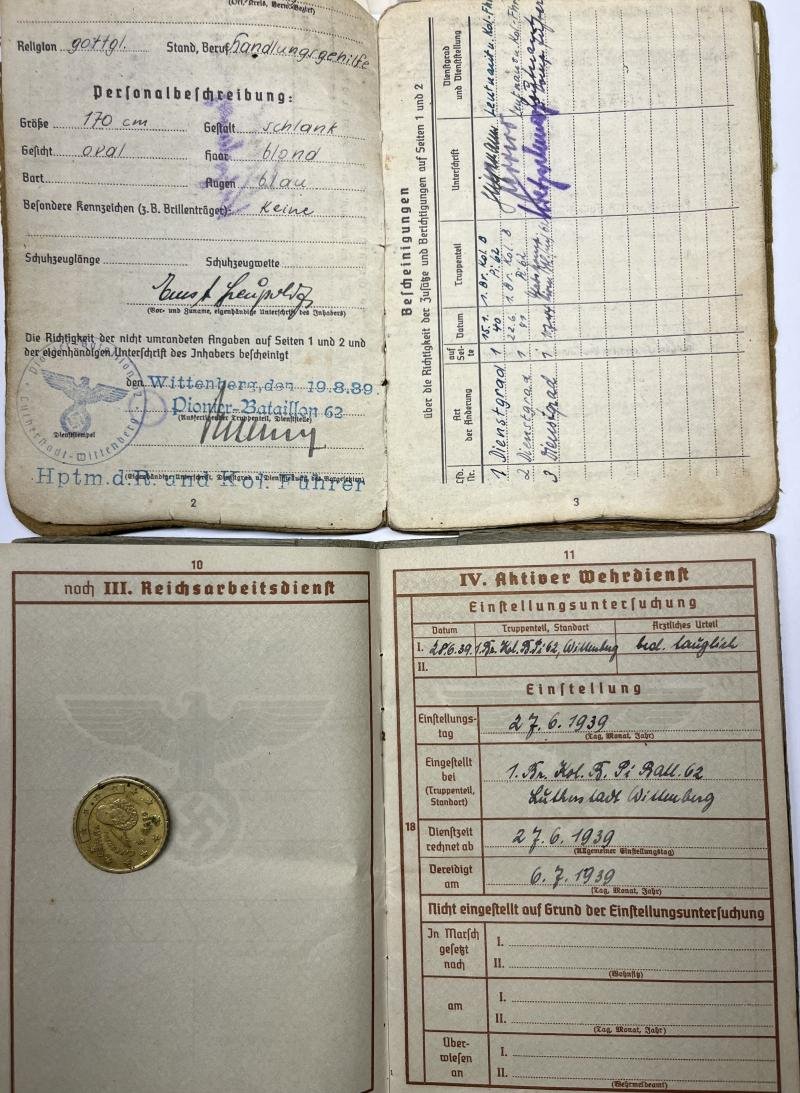 (Ort, Kreis, Verw.-Bezirk)
Religion gottgl. Stand, Beruf Handlungsgehilfe
Personalbeschreibung:
Größe 170 cm Gestalt schlank
Gesicht oval Haar blond
Bart Augen blau
Besondere Kennzeichen (z.B. Brillenträger): Keine
Schuhzeuglänge Schuhzeugweite
Ernst Leupold
(Vor- und Zuname, eigenhändige Unterschrift des Inhabers)
Die Richtigkeit der nicht umrandeten Angaben auf Seiten 1 und 2 und
der eigenhändigen Unterschrift des Inhabers bescheinigt
den Wittenberg, den 19.8.39
Pionier-Bataillon 62
(Ausfertigender Truppenteil, Dienststelle)
Dienststempel
Lutherstadt-Wittenberg
Hptm.d.R. und Kol.Führer
(Eigenhändige Unterschrift, Dienstgrad u. Dienststellung des Vorgesetzten)
2
Bescheinigungen
über die Richtigkeit der Zusätze und Berichtigungen auf Seiten 1 und 2
Lfd. Nr. Art der Änderung auf Seite Datum Truppenteil Unterschrift Dienstgrad und Dienststellung
1 Dienstgrad 1 15.1.40 1. Br. Kol. B Pi 62 Leutnant u. Kol.-Fhr
2 Dienstgrad 1 22.6.41 1. Br. Kol. B Pi 62 Leutnant u. Kol. Fhr
3 Dienstgrad 1
3
10
noch III. Reichsarbeitsdienst
11
IV. Aktiver Wehrdienst
Einstellungsuntersuchung
Datum Truppenteil, Standort Ärztliches Urteil
I. 28.6.39. 1. Br. Kol. B. Pi 62, Wittenberg bed. tauglich
II.
Einstellung
Einstellungstag 27.6.1939
(Tag, Monat, Jahr)
Eingestellt bei (Truppenteil, Standort) 1. Br. Kol. B. Pi Batl. 62
Lutherstadt Wittenberg
18
Dienstzeit rechnet ab 27.6.1939
(Allgemeiner Einstellungstag)
Vereidigt am 6.7.1939
(Tag, Monat, Jahr)
Nicht eingestellt auf Grund der Einstellungsuntersuchung
In Marsch gesetzt nach I.
II.
(Wohnsitz)
am I.
II.
(Tag, Monat, Jahr)
Überwiesen an I.
II.
(Wehrmeldeamt)